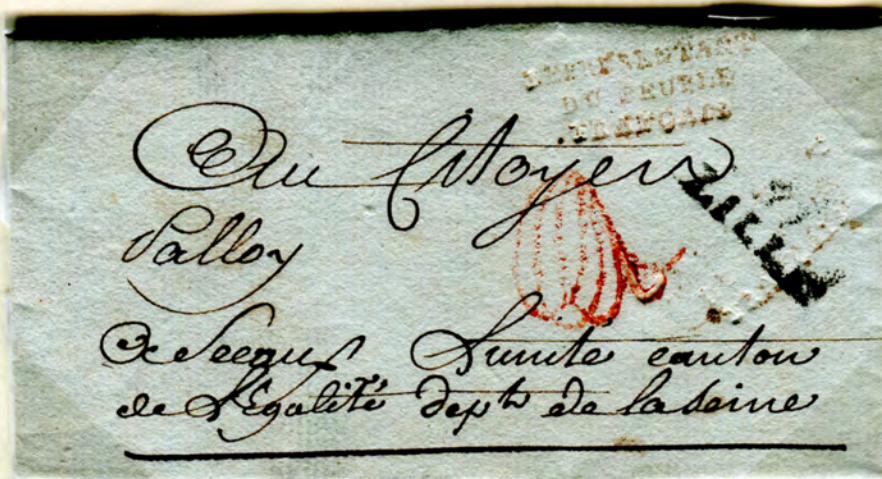 REPRESENTANT
DU PEUPLE
Au Citoyen
LILLE
Palloy
a Sceaux L'unité canton
de L'Egalité dept de la Seine